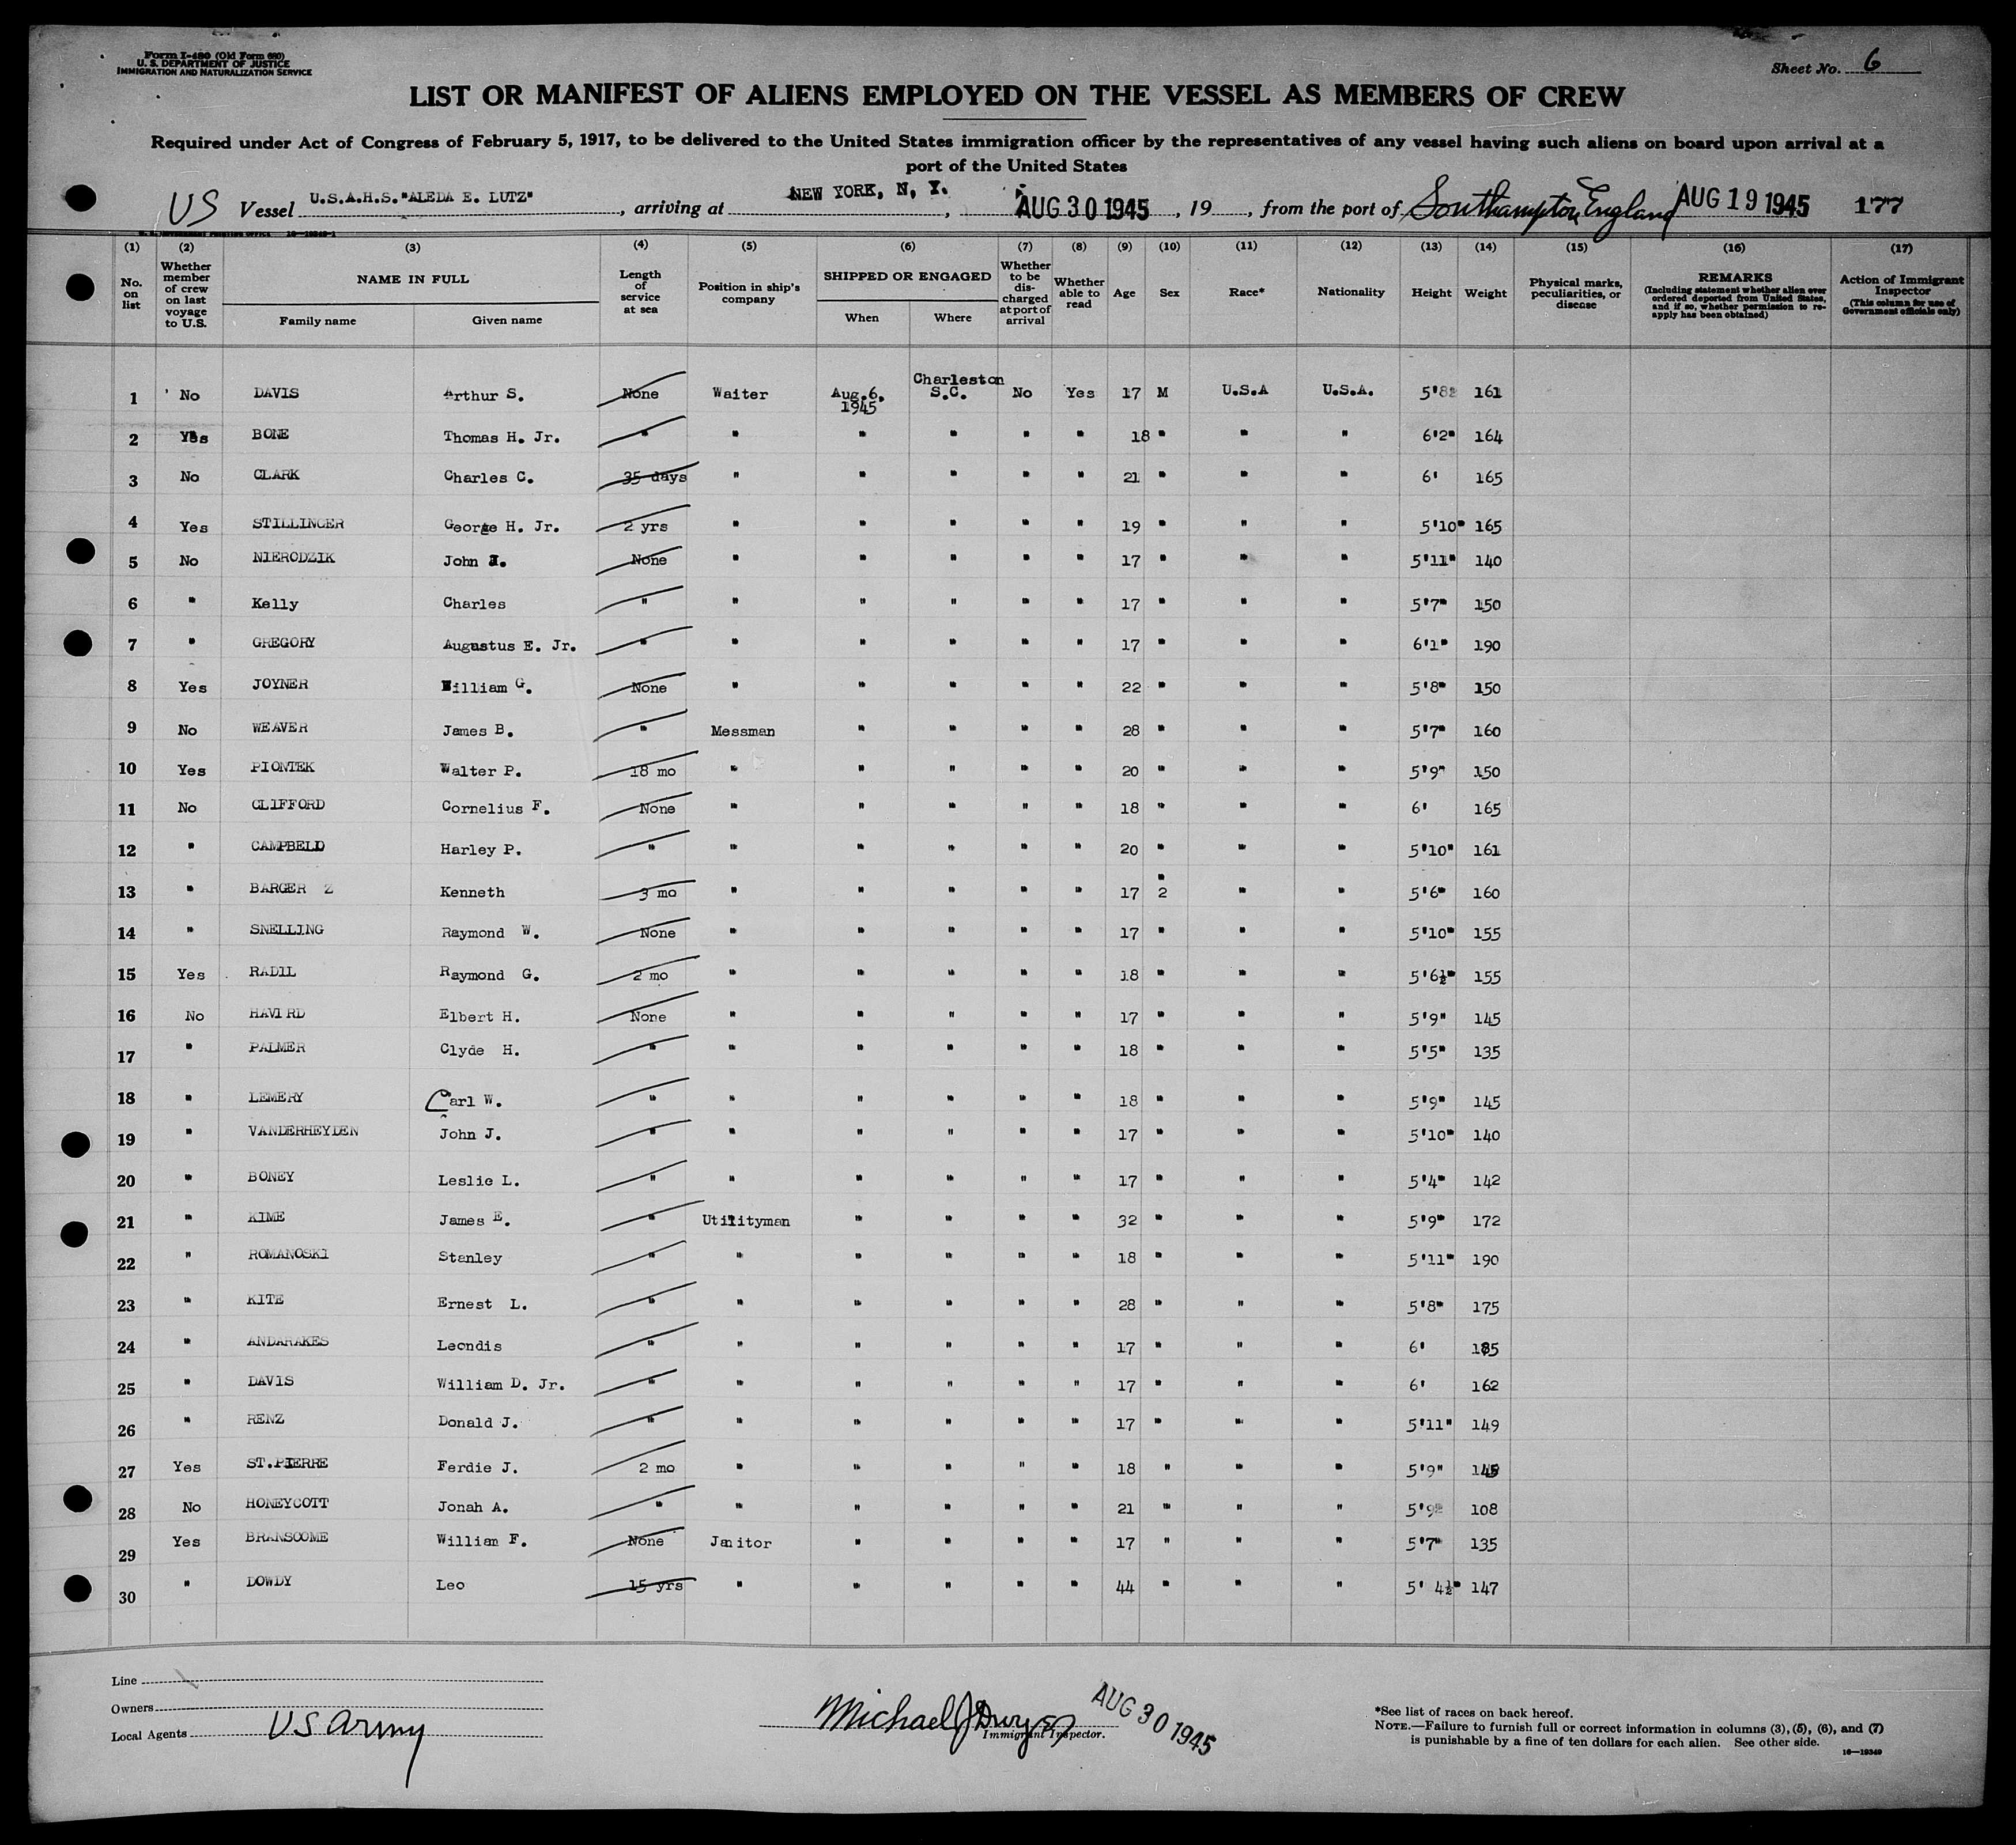 Form I-480 (Old Form 680)
U. S. DEPARTMENT OF JUSTICE
IMMIGRATION AND NATURALIZATION SERVICE
Sheet No. 6
LIST OR MANIFEST OF ALIENS EMPLOYED ON THE VESSEL AS MEMBERS OF CREW
Required under Act of Congress of February 5, 1917, to be delivered to the United States immigration officer by the representatives of any vessel having such aliens on board upon arrival at a
port of the United States
US Vessel U.S.A.H.S."ALEDA E. LUTZ", arriving at NEW YORK, N, Y., AUG 30 1945, 19, from the port of Southampton, England AUG 19 1945 177
(1) (2) (3) (4) (5) (6) (7) (8) (9) (10) (11) (12) (13) (14) (15) (16) (17)
No. on list
Whether member of crew on last voyage to U.S.
NAME IN FULL
Family name
Given name
Length of service at sea
Position in ship's company
SHIPPED OR ENGAGED
When
Where
Whether to be discharged at port of arrival
Whether able to read
Age
Sex
Race*
Nationality
Height
Weight
Physical marks, peculiarities, or disease
REMARKS
(Including statement whether alien ever ordered deported from United States, and if so, whether permission to reapply has been obtained)
Action of Immigrant Inspector
(This column for use of Government officials only)
1 No DAVIS Arthur S. None Waiter Aug.6. 1945 Charleston S.C. No Yes 17 M U.S.A U.S.A. 5'8 161
2 Yes BONE Thomas H. Jr. " " " " " " 18 " " " 6'2" 164
3 No CLARK Charles C. 35 days " " " " " 21 " " " 6' 165
4 Yes STILLINGER George H. Jr. 2 yrs " " " " " 19 " " " 5'10" 165
5 No NIERODZIK John I. None " " " " " 17 " " " 5'11" 140
6 " Kelly Charles " " " " " " 17 " " " 5'7" 150
7 " GREGORY Augustus E. Jr. " " " " " " 17 " " " 6'1" 190
8 Yes JOYNER William G. None " " " " " 22 " " " 5'8" 150
9 No WEAVER James B. " Messman " " " " 28 " " " 5'7" 160
10 Yes PIONTEK Walter P. 18 mo " " " " " 20 " " " 5'9" 150
11 No CLIFFORD Cornelius F. None " " " " " 18 " " " 6' 165
12 " CAMPBELL Harley P. " " " " " " 20 " " " 5'10" 161
13 " BARGER Z Kenneth 3 mo " " " " " 17 " 2 " " 5'6" 160
14 " SNELLING Raymond W. None " " " " " 17 " " " 5'10" 155
15 Yes RADIL Raymond G. 2 mo " " " " " 18 " " " 5'6½" 155
16 No HAVIRD Elbert H. None " " " " " 17 " " " 5'9" 145
17 " PALMER Clyde H. " " " " " " 18 " " " 5'5" 135
18 " LEMERY Carl W. " " " " " " 18 " " " 5'9" 145
19 " VANDERHEYDEN John J. " " " " " " 17 " " " 5'10" 140
20 " BONEY Leslie L. " " " " " " 17 " " " 5'4" 142
21 " KIME James E. " Utilityman " " " " 32 " " " 5'9" 172
22 " ROMANOSKI Stanley " " " " " " 18 " " " 5'11" 190
23 " KITE Ernest L. " " " " " " 28 " " " 5'8" 175
24 " ANDARAKES Leondis " " " " " " 17 " " " 6' 185
25 " DAVIS William D. Jr. " " " " " " 17 " " " 6' 162
26 " RENZ Donald J. " " " " " " 17 " " " 5'11" 149
27 Yes ST.PIERRE Ferdie J. 2 mo " " " " " 18 " " " 5'9" 145
28 No HONEYCOTT Jonah A. " " " " " " 21 " " " 5'9" 108
29 Yes BRANSCOME William F. None Janitor " " " " 17 " " " 5'7" 135
30 " DOWDY Leo 15 yrs " " " " " 44 " " " 5' 4½" 147
Line
Owners
Local Agents US Army
Michael J Dwyer
Immigrant Inspector.
AUG 30 1945
*See list of races on back hereof.
NOTE.—Failure to furnish full or correct information in columns (3), (5), (6), and (7)
is punishable by a fine of ten dollars for each alien. See other side.
16—19349